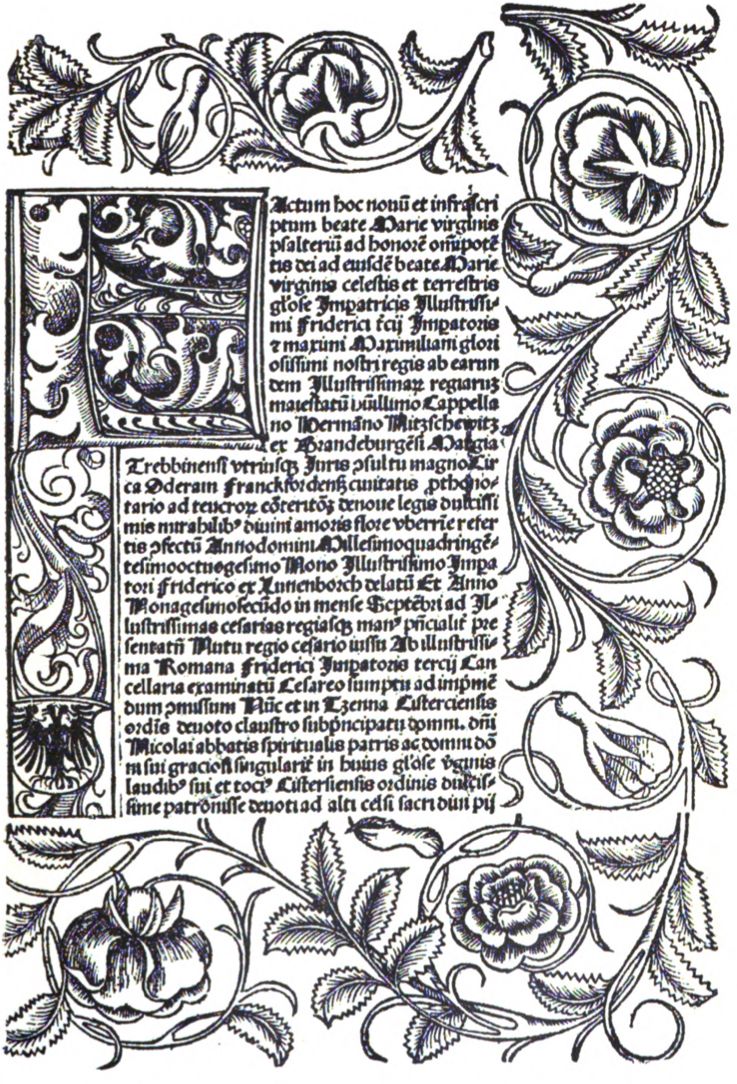 FActum hoc nouū et infrascri
ptum beate Marie virginis
psalteriū ad honorē om̄ipotē
tis dei ad eiusdē beate Marie
virginis celestis et terrestris
głose Impatricis Illustrissi⸗
mi Friderici tcij Impatoris
⁊ maximi Maximiliani glori
osissimi nostri regis ab earun
dem Illustrissimaꝝ regiarūꝫ
maiestatū Cappella
no Hermāno Nitzschewitz
ex Brandeburgēsi Margia
Trebbinensi vtriusqꝫ Juris ꝯsultu magno Cir
ca Oderam Franckfordensꝫ ciuitatis ꝓthono⸗
tario ad denoue legis dulcissi
mis mirabilibꝰ diuini amoris flore vberrīe refer
tis ꝯfectū Annodomini Millesimoquadringē⸗
tesimooctuogesimo Nono Illustrissimo Impa
tori Friderico ex Luttenborch delatū Et Anno
Nonagesimosecūdo in mense Septēbri ad Il⸗
lustrissimas cesarias regiasqꝫ manꝰ pre
sentatū Nutu regio cesario iussu Ab illustrissi⸗
ma Romana Friderici Impatoris tercij Can
cellaria examinatū Cesareo sumptu ad impmē
dum ꝯmissum Nūc et in Tzenna Cisterciensis
ordīs deuoto claustro domni. dn̄i
Nicolai abbatis spiritualis patris ac domni dō
ni sui graciosi singularis in huius głose v̄ginis
laudibꝰ sui et tociꝰ Cistersiensis ordinis dulcis⸗
sime patronisse deuoti ad alti celsi sacri diui pij